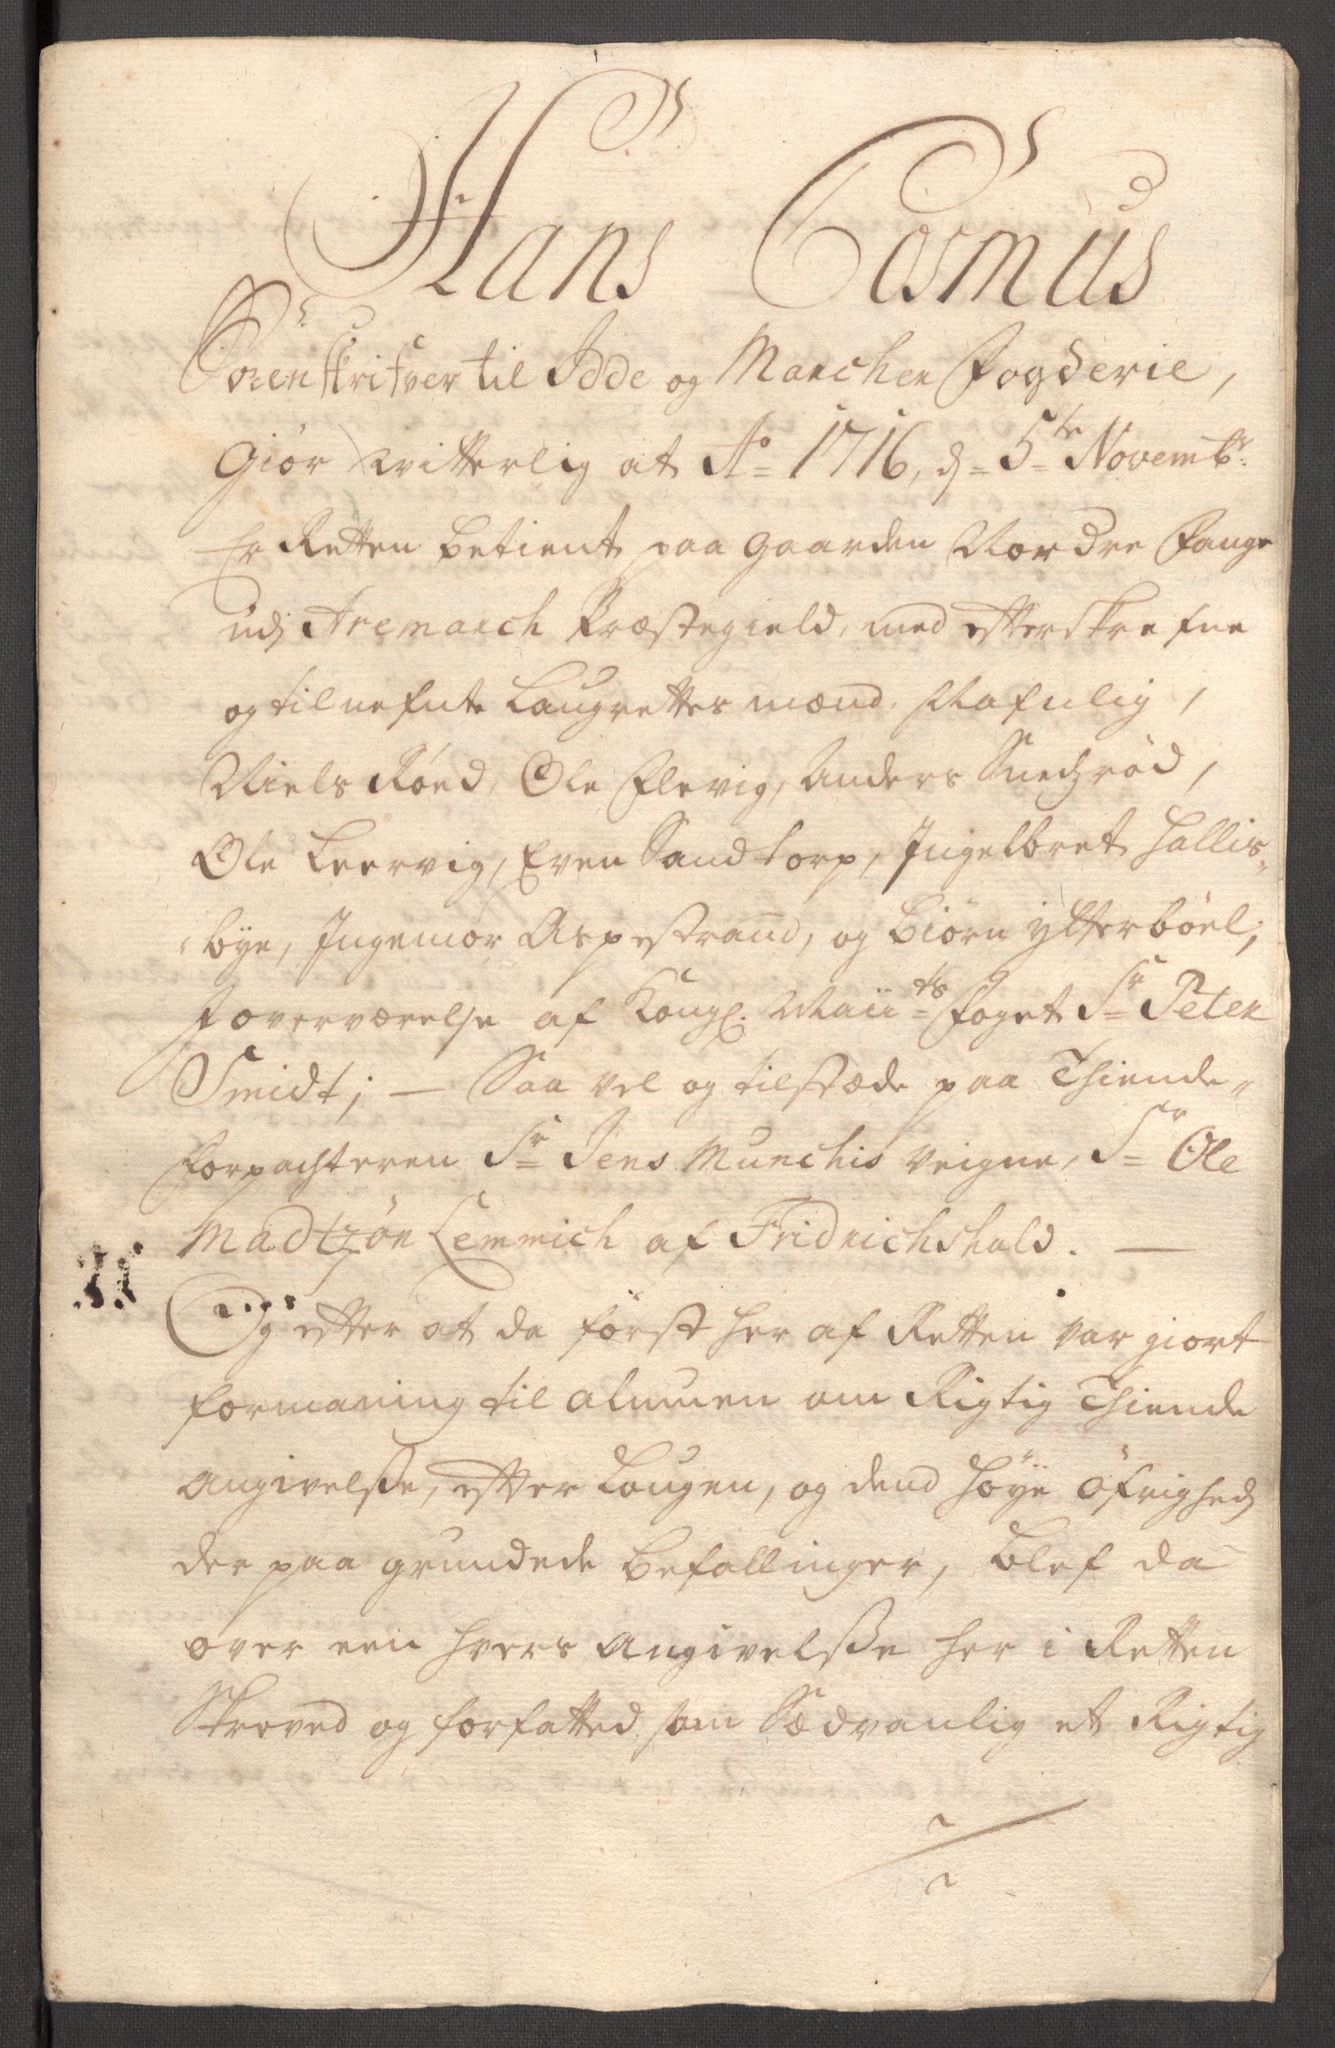 Hans Cosmus
Sorenskrifver til Idde og Marcher Fogderie,
giør witterlig at Ao 1716, d. 5te Novembr.
Er Retten betient paa gaarden Nordre Fange
udj Aremarch Præstegield, med efterskrefne
og tilnefnte Laugrettesmænd. Nafnlig,
Niels Røed, Ole Elevig, Anders Snedzrød,
Ole Leervig, Even Sandtorp, Ingelbret Hallis-
bye, Ingemor Aspestrand, og Biørn ytterbøel;
Joverværelse af Kongl. Maiits foget Sr Peter
Smidt; — Saa vel og tilstæde paa Thiende-
forpachteren Sr Jens Munchis veigne, Sr Ole
Madtzøn Lemmich af Fridrichshald. —
Og efter at da først her af Retten var giort
formaning til almuen om Rigtig Thiende
angivelsse, efter Lougen, og dend höye öfrigheds
der paa grundede befallinger, blef da
over een hvers angivelsse her i Retten
Skreved og forfatted, som Sædvanlig et Rigtig